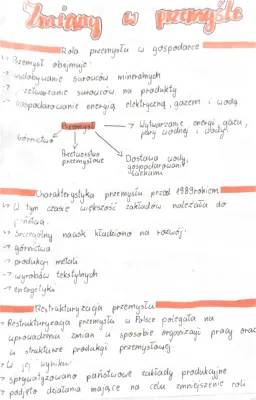 Zmiany w przemyśle
Rola przemysłu w gospodarce
-> Przemysł obejmuje:
-> wydobywanie surowców mineralnych
-> przetwarzanie surowców na produkty
-> gospodarowanie energią elektryczną, gazem i wodą
Przemysł -> Wytwarzanie energi, gazu,
pary wodnej i wody
górnictwo
Przetwórstwo
przemysłowe
Dostawa wody,
gospodarowanie
ściekami
Charakterystyka przemysłu przed 1989 rokiem
-> W tym czasie większość zakładów należała do
państwa.
-> Szczególny nacisk kładziono na rozwój:
-> górnictwa
-> produkcji metali
-> wyrobów tekstylnych
-> energetyki
Restrukturyzacja przemysłu
-> Restrukturyzacja przemysłu w Polsce polegała na
wprowadzeniu zmian w sposobie organizacji pracy oraz
w strukturze produkcji przemysłowej
-> W jej wyniku:
-> sprywatyzowano państwowe zakłady produkcyjne
-> podjęto działania mające na celu zmniejszenie roli